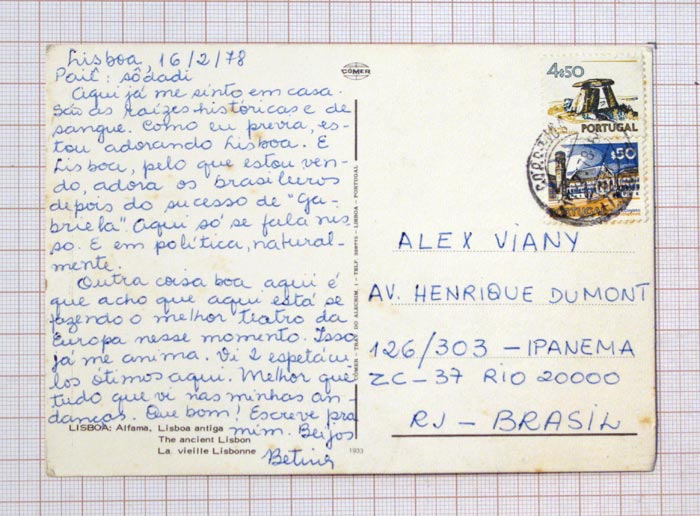 Lisboa, 16/2/78
Pail: sôdadi
Aqui já me sinto em casa.
São as raízes históricas e de
sangue. Como eu previa, es-
tou adorando Lisboa. E
Lisboa, pelo que estou ven-
do, adora os brasileiros
depois do sucesso de "Ga-
briela". Aqui só se fala nis-
so. E em política, natural-
mente.
Outra coisa boa aqui é
que acho que aqui está se
fazendo o melhor teatro da
Europa nesse momento. Isso
já me anima. Vi 2 espetácu-
los ótimos aqui. Melhor que
tudo que vi nas minhas an-
danças. Que bom! Escreve pra
mim. Beijos
Betina
LISBOA: Alfama, Lisboa antiga
The ancient Lisbon
La vieille Lisbonne
1933
CÓMER
CÓMER - TRAV. DO ALECRIM, 1 - TELF. - LISBOA - PORTUGAL
4$50
PORTUGAL
$50
CORREIOS
ALEX VIANY
AV. HENRIQUE DUMONT
126/303 - IPANEMA
ZC-37 RIO 20000
RJ - BRASIL